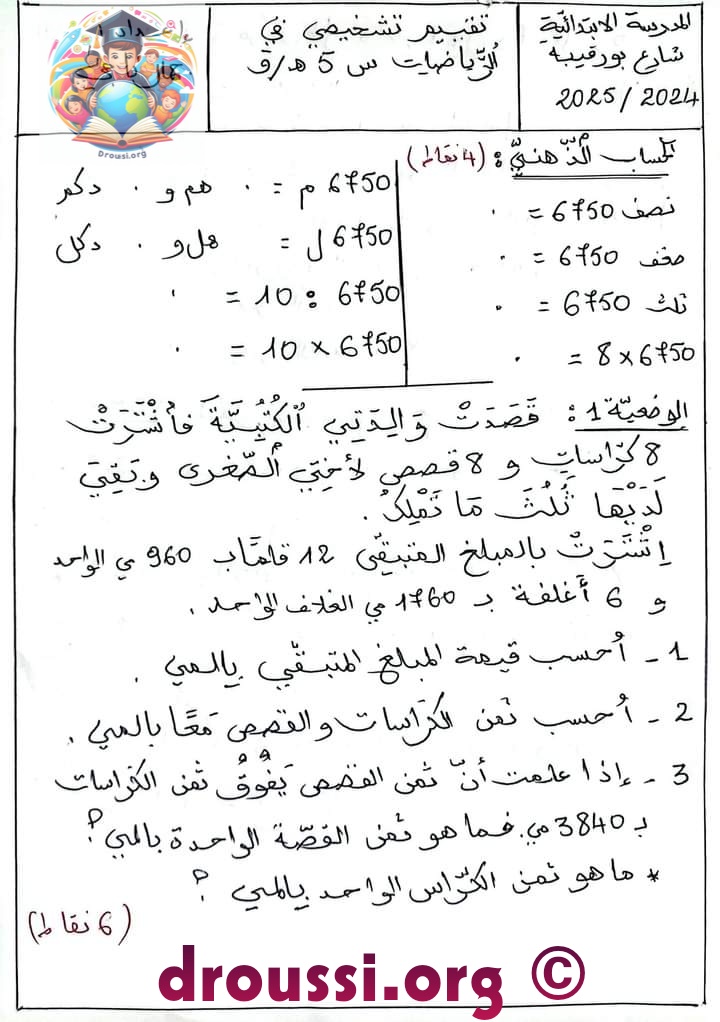 المدرسة الابتدائية
شارع بورقيبة
2025/2024
تقييم تشخيصي في
الرّياضيات س 5 هـ/ق
Droussi.org
الحساب الذّهنيّ : (4 نقاط)
نصف 6750 = .
ضعف 6750 = .
ثلث 6750 = .
8 x 6750 = .
6750 م = . هم و . دكم
6750 ل = هل و . دكل
6750 : 10 = .
6750 x 10 = .
الوضعيّة 1 : قَصَدَتْ وَالِدَتِي الْكُتُبِيَّةَ فَاشْتَرَتْ
8 كرّاسات و 8 قصص لأختِي الصّغرى و بَقِيَ
لَدَيْهَا ثُلُثَ مَا تَمْلِكُ .
اِشْتَرَتْ بالمبلغ المتبقّي 12 قلمًا بـ 960 مي الواحد
و 6 أغلفة بـ 1760 مي الغلاف الواحد .
1 - أُحسب قيمة المبلغ المتبقّي بالمي .
2 - أُحسب ثمن الكرّاسات والقصص مَعًا بالمي .
3 - إذا علمت أنّ ثمن القصص يَفُوقُ ثمن الكرّاسات
بـ 3840 مي. فما هو ثمن القصّة الواحدة بالمي ؟
* ما هو ثمن الكرّاس الواحد بالمي ؟
(6 نقاط)
droussi.org ©